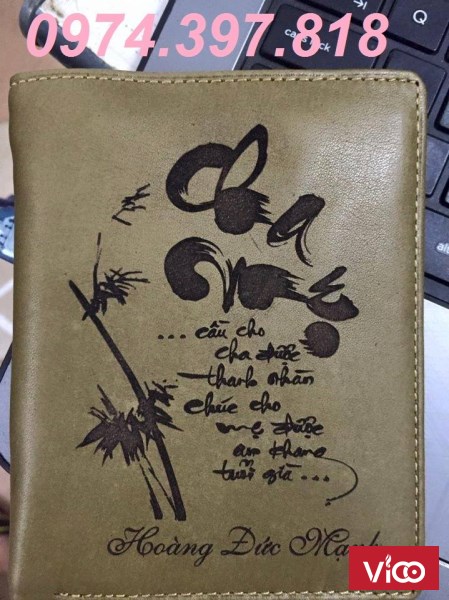 0974.397.818
Q
caps lock
alt
Cha
Mẹ
... cầu cho
cha được
thanh nhàn
chúc cho
mẹ được
an khang
tuổi già ...
Hoàng Đức Mạnh